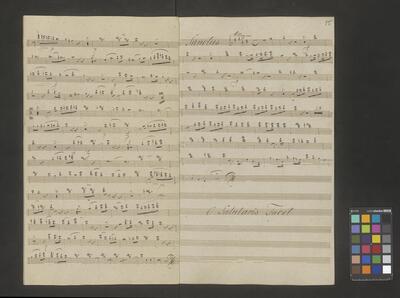 15
Sanctus
O Salutaris Tacet